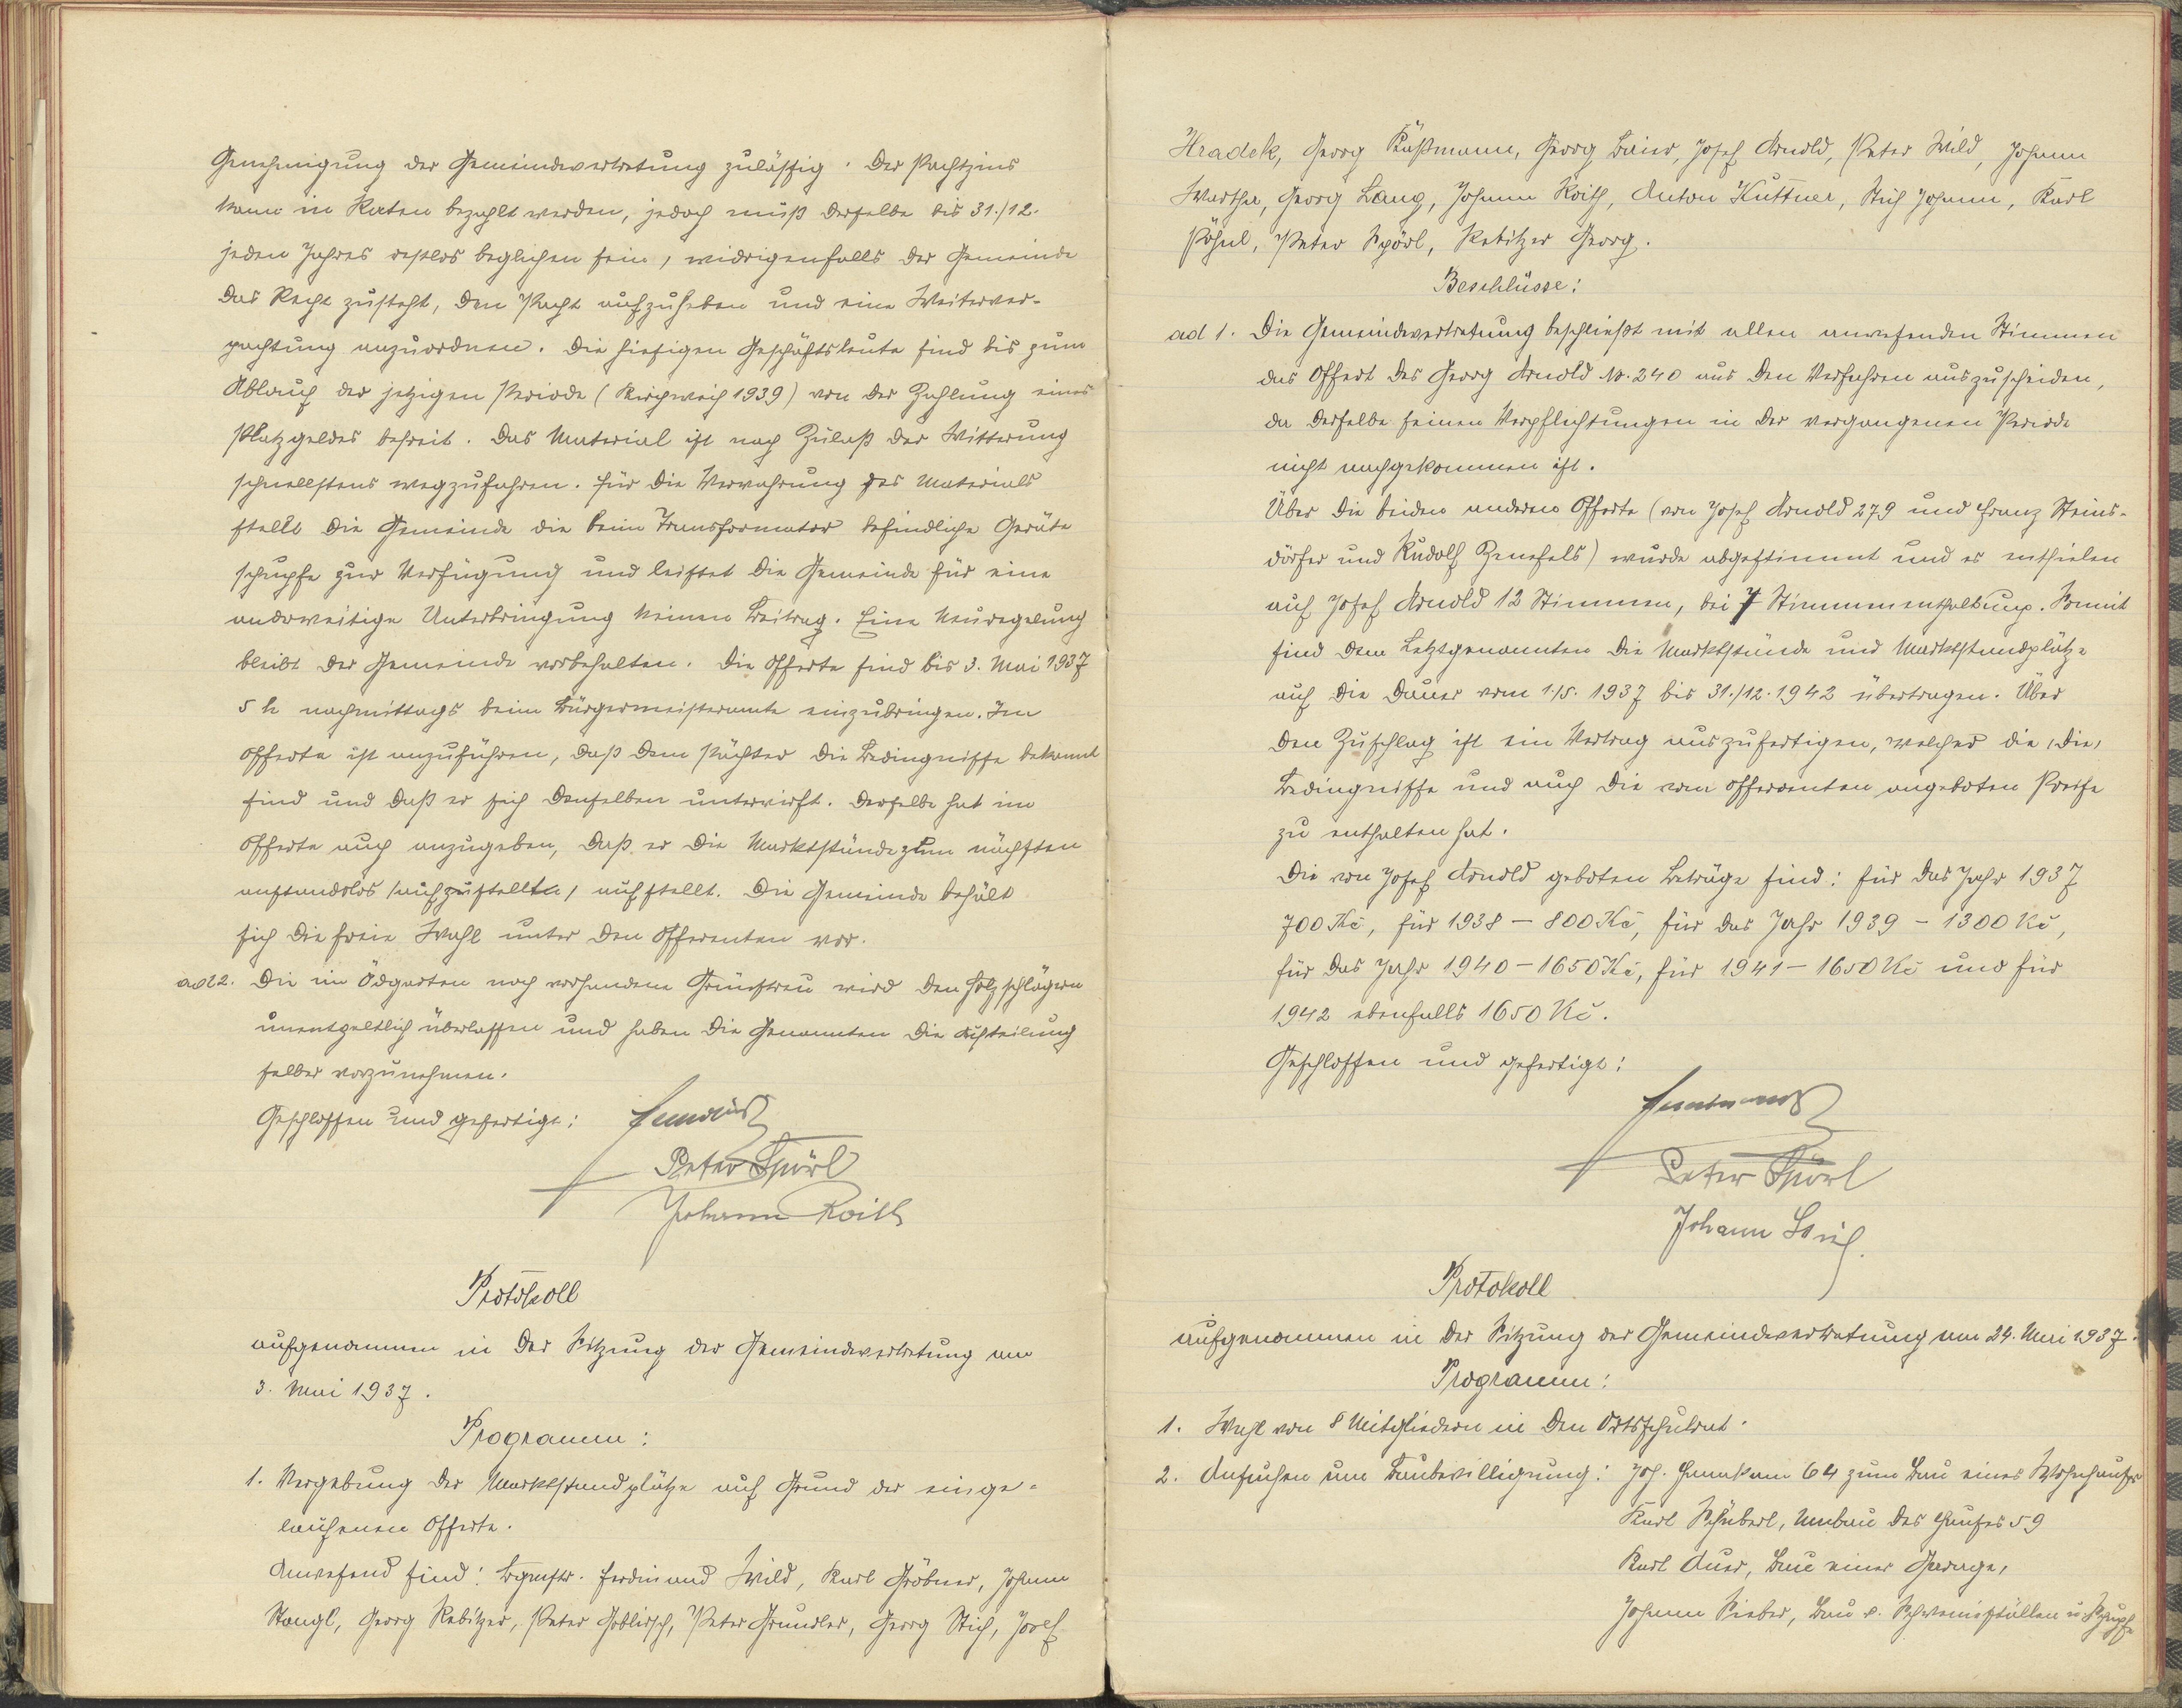 Genehmigung der Gemeindevertretung zulässig. Der Pachtzins
kann in Raten bezahlt werden, jedoch muß derselbe bis 31./12.
jeden Jahres restlos beglichen sein, widrigenfalls der Gemeinde
das Recht zusteht, den Pacht aufzuheben und eine Weiterver-
pachtung anzuordnen. Die hiesigen Geschäftsleute sind bis zum
Ablauf der jetzigen Periode (Kirchweih 1939) von der Zahlung eines
Platzgeldes befreit. Das Material ist nach Zulaß der Witterung
schnellstens wegzufahren. Für die Verwahrung des Materials
stellt die Gemeinde die beim Transformator befindliche Geräte
schupfe zur Verfügung und leistet die Gemeinde für eine
anderweitige Unterbringung keinen Beitrag. Eine Neuregelung
bleibt der Gemeinde vorbehalten. Die Offerte sind bis 3. Mai 1937
5 h nachmittags beim Bürgermeisteramte einzubringen. Im
Offerte ist anzuführen, daß dem Pächter die Bedingnisse bekannt
sind und daß er sich denselben unterwirft. Derselbe hat im
Offerte auch anzugeben, daß er die Marktstände zum nächsten
anstandslos /aufzustellen/ aufstellt. Die Gemeinde behält
sich die freie Wahl unter den Offerenten vor.
ad 2. Die im Ödgarten noch vorhandene Grünstreu wird den Holzschlägern
unentgeltlich überlassen und haben die Genannten die Aufteilung
selber vorzunehmen.
Geschlossen und gefertigt:
Peter Spörl
Johann Roith
Protokoll
aufgenommen in der Sitzung der Gemeindevertretung am
3. Mai 1937.
Programm:
1. Vergebung der Marktstandplätze auf Grund der einge-
laufenen Offerte.
Anwesend sind: Bgmstr. Ferdinand Wild, Karl Gröbner, Johann
Stangl, Georg Rebitzer, Peter Goblirsch, Peter Grundler, Georg Stich, Josef
Hradek, Georg Käßmann, Georg Baier, Josef Arnold, Peter Wild, Johann
Wartha, Georg Lang, Johann Roith, Anton Kuttner, Stich Johann, Karl
Pöhnl, Peter Spörl, Rebitzer Georg.
Beschlüsse:
ad 1. Die Gemeindevertretung beschließt mit allen anwesenden Stimmen
das Offert des Georg Arnold No. 240 aus den Verfahren auszuscheiden,
da derselbe seinen Verpflichtungen in der vergangenen Periode
nicht nachgekommen ist.
Über die beiden anderen Offerte (von Josef Arnold 279 und Franz Steins-
dörfer und Rudolf Zenefels) wurde abgestimmt und es entfielen
auf Josef Arnold 12 Stimmen, bei 7 Stimmenenthaltung. Somit
sind dem Letztgenannten die Marktstände und Marktstandplätze
auf die Dauer vom 1./5. 1937 bis 31./12. 1942 übertragen. Über
den Zuschlag ist ein Vertrag auszufertigen, welcher die /die/
Bedingnisse und auch die vom Offerenten angeboten Preise
zu enthalten hat.
Die von Josef Arnold geboten Beträge sind: für das Jahr 1937
700 Kč, für 1938 – 800 Kč, für das Jahr 1939 – 1300 Kč,
für das Jahr 1940 – 1650 Kč, für 1941 – 1650 Kč und für
1942 ebenfalls 1650 Kč.
Geschlossen und gefertigt:
Peter Spörl
Johann
Protokoll
aufgenommen in der Sitzung der Gemeindevertretung am 24. Mai 1937.
Programm:
1. Wahl von 8 Mitgliedern in den Ortsschulrat.
2. Ansuchen um Baubewilligung: Joh. 64 zum Bau eines Wohnhauses
Karl Schuberl, Umbau des Hauses 59
Karl Auer, Bau einer Garage,
Johann Sieber, Bau v. Schweinställen u Schupfe